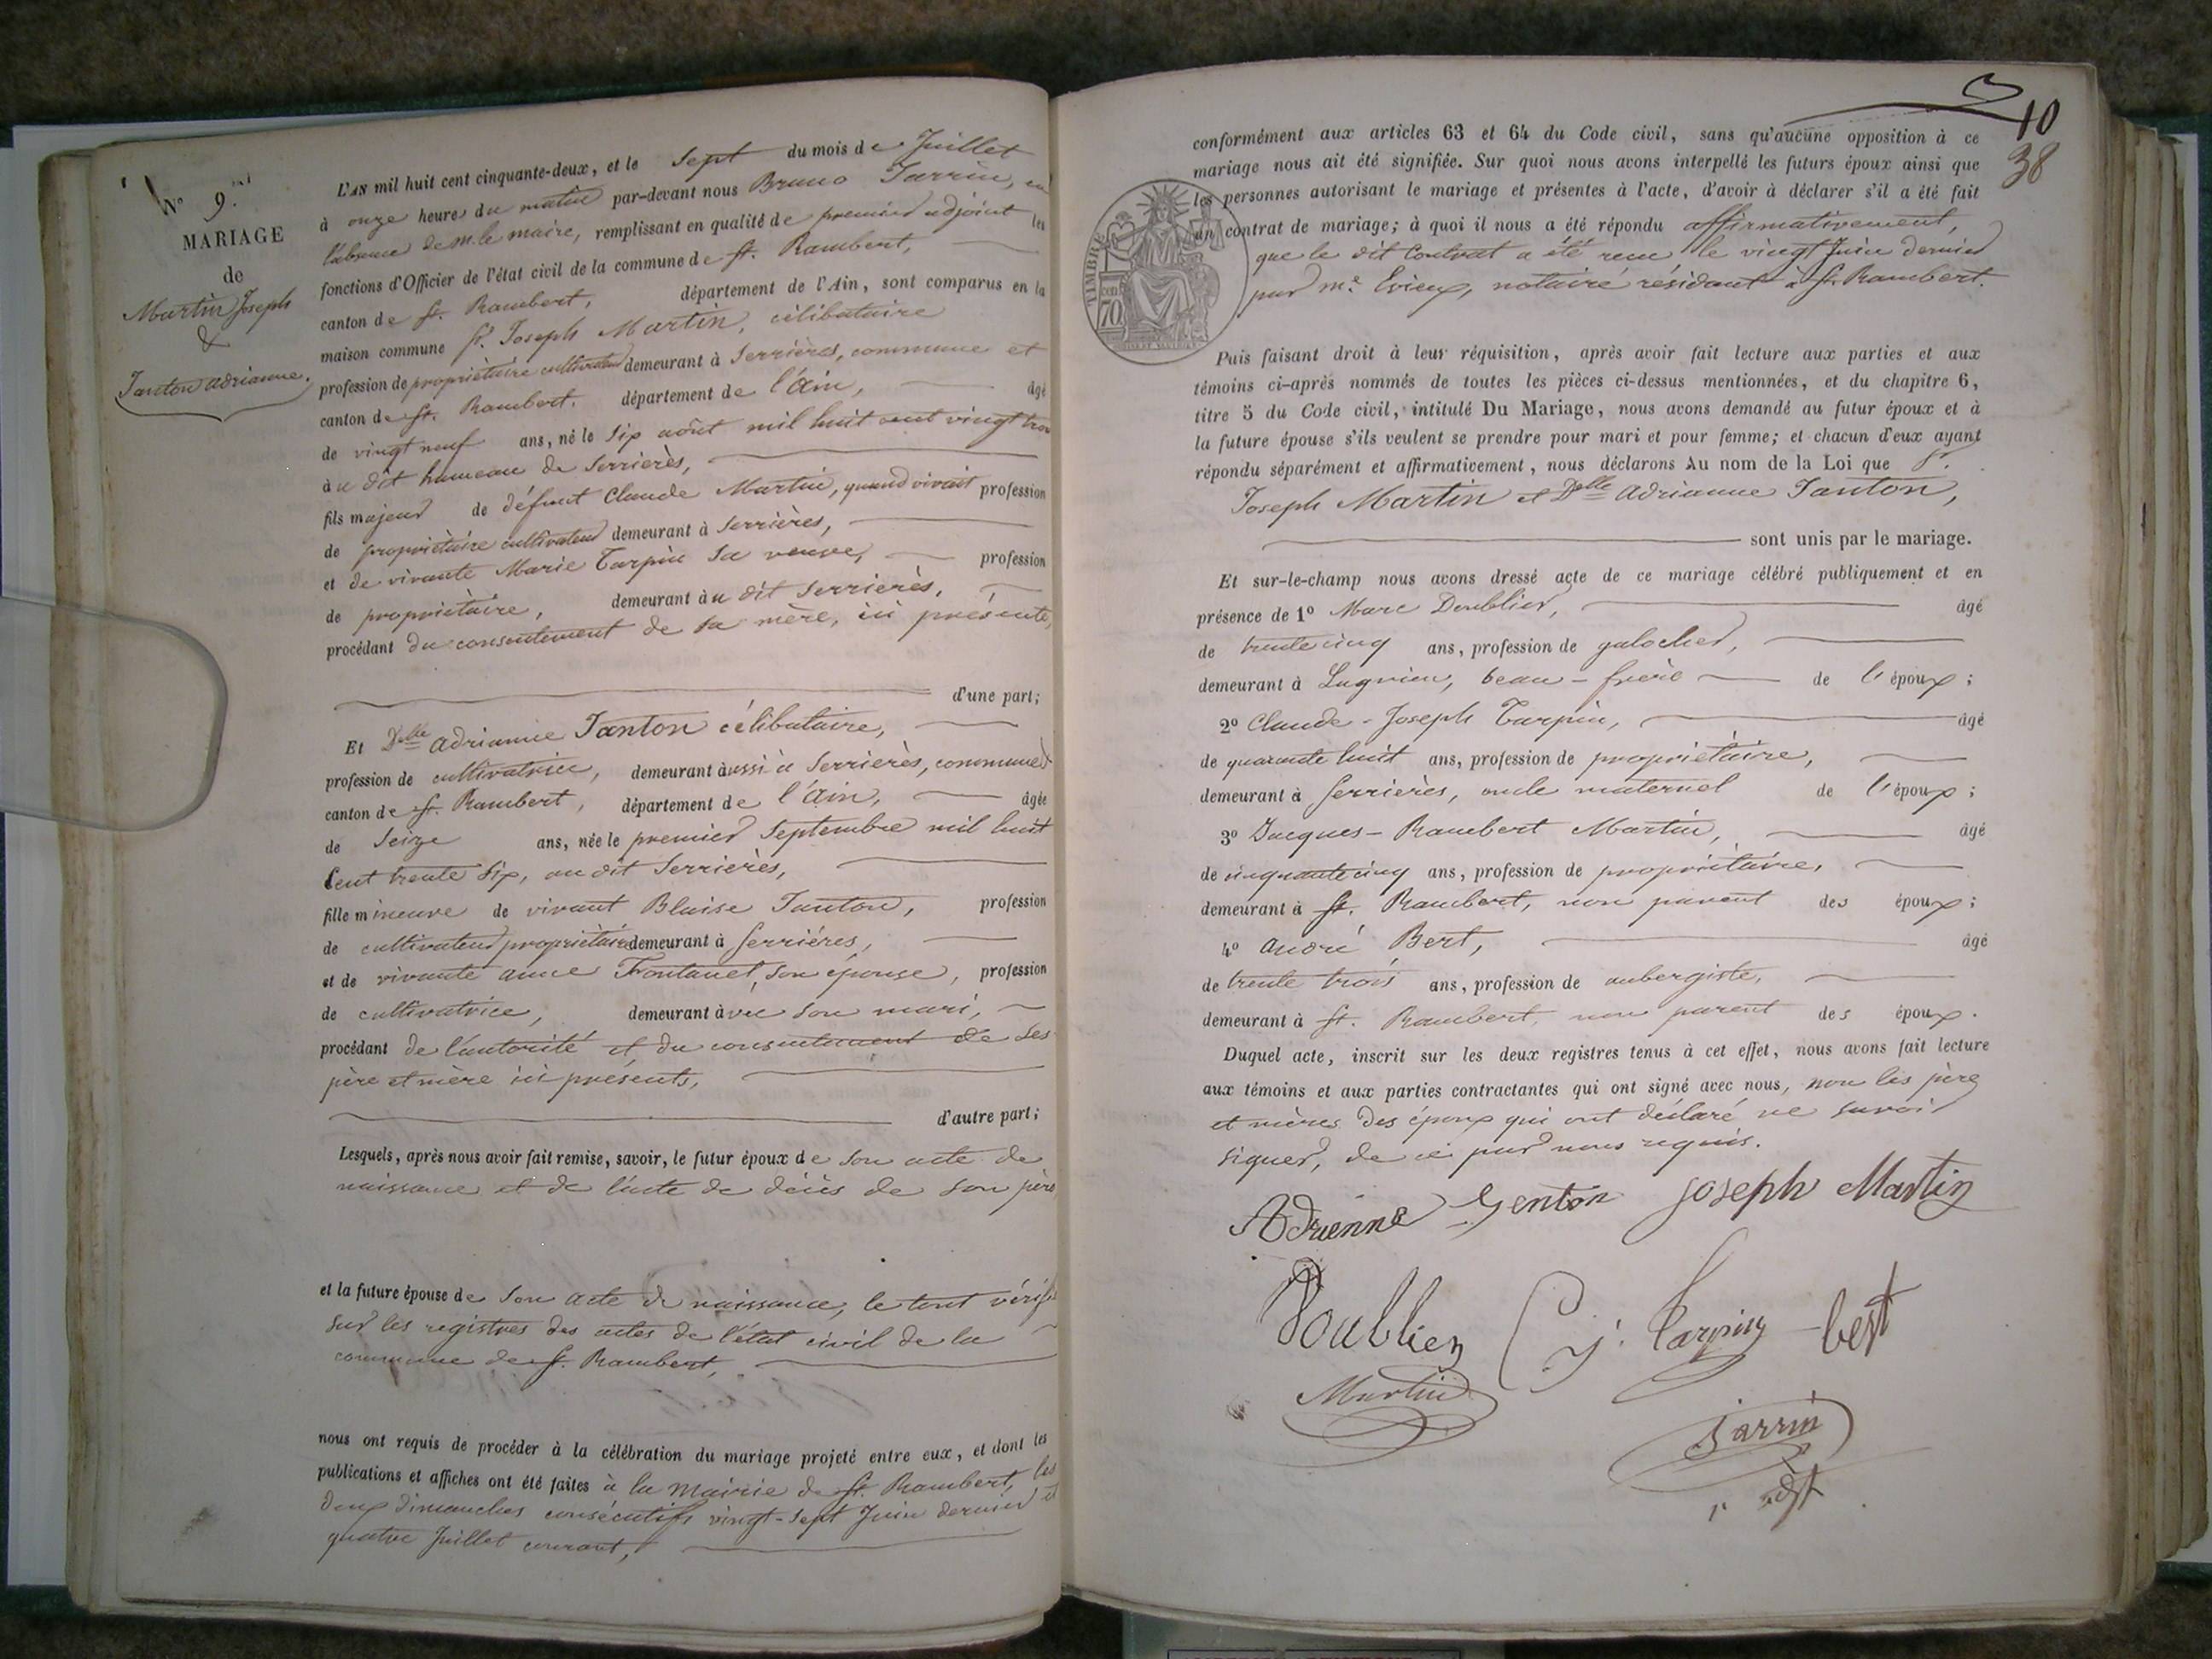 N° 9.
MARIAGE
de
Martin Joseph
&
Janton adrianne.
L'AN mil huit cent cinquante-deux, et le Sept du mois de Juillet
à onze heures du matin par-devant nous Bruno Jarrin, en
l'absence de m. le maire, remplissant en qualité de premier adjoint les
fonctions d'Officier de l'état civil de la commune de St. Rambert,
canton de St. Rambert, département de l'Ain, sont comparus en la
maison commune Sr. Joseph Martin, célibataire
profession de propriétaire cultivateur demeurant à Serrières, commune et
canton de St. Rambert. département de l'Ain, âgé
de vingt neuf ans, né le Six août mil huit cent vingt trois
au dit hameau de Serrières,
fils majeur de défunt Claude Martin, quand vivait profession
de propriétaire cultivateur demeurant à Serrières,
et de vivante Marie Tarpin sa veuve, profession
de propriétaire, demeurant au dit Serrières,
procédant du consentement de sa mère, ici présente,
d'une part;
Et Delle adrianne Janton célibataire,
profession de cultivatrice, demeurant aussi à Serrières, commune &
canton de St. Rambert, département de l'Ain, âgée
de Seize ans, née le premier Septembre mil huit
Cent trente Six, au dit Serrières,
fille mineure de vivant Blaise Janton, profession
de cultivateur propriétaire demeurant à Serrières,
et de vivante anne Fontanel, son épouse, profession
de cultivatrice, demeurant avec son mari,
procédant de l'autorité et du consentement de ses
père et mère ici présents,
d'autre part;
Lesquels, après nous avoir fait remise, savoir, le futur époux de son acte de
naissance et de l'acte de décès de son père
et la future épouse de son acte de naissance, le tout vérifié
sur les registres des actes de l'état civil de la
commune de St. Rambert,
nous ont requis de procéder à la célébration du mariage projeté entre eux, et dont les
publications et affiches ont été faites à la Mairie de St. Rambert, les
deux dimanches consécutifs vingt-sept Juin dernier et
quatre Juillet courant,
10
38
conformément aux articles 63 et 64 du Code civil, sans qu'aucune opposition à ce
mariage nous ait été signifiée. Sur quoi nous avons interpellé les futurs époux ainsi que
les personnes autorisant le mariage et présentes à l'acte, d'avoir à déclarer s'il a été fait
un contrat de mariage; à quoi il nous a été répondu affirmativement,
que le dit Contrat a été reçu le vingt Juin dernier
par me. Evieux, notaire résidant à St. Rambert.
TIMBRE
70
Puis faisant droit à leur réquisition, après avoir fait lecture aux parties et aux
témoins ci-après nommés de toutes les pièces ci-dessus mentionnées, et du chapitre 6,
titre 5 du Code civil, intitulé Du Mariage, nous avons demandé au futur époux et à
la future épouse s'ils veulent se prendre pour mari et pour femme; et chacun d'eux ayant
répondu séparément et affirmativement, nous déclarons Au nom de la Loi que Sr.
Joseph Martin et Delle adrianne Janton,
sont unis par le mariage.
Et sur-le-champ nous avons dressé acte de ce mariage célébré publiquement et en
présence de 1° Marc Doublier, âgé
de trente cinq ans, profession de galocher,
demeurant à Lagnieu, beau-frère de l'époux;
2° Claude-Joseph Tarpin, âgé
de quarante huit ans, profession de propriétaire,
demeurant à Serrières, oncle maternel de l'époux;
3° Jacques-Rambert Martin, âgé
de cinquante cinq ans, profession de propriétaire,
demeurant à St. Rambert, non parent des époux;
4° André Bert, âgé
de trente trois ans, profession de aubergiste,
demeurant à St. Rambert, non parent des époux.
Duquel acte, inscrit sur les deux registres tenus à cet effet, nous avons fait lecture
aux témoins et aux parties contractantes qui ont signé avec nous, non les père
et mères des époux qui ont déclaré ne savoir
signer, de ce par nous requis.
Adrienne Genton Joseph Martin
Doublier C. j. Tarpin bert
Martin
Jarrin
1r adjt